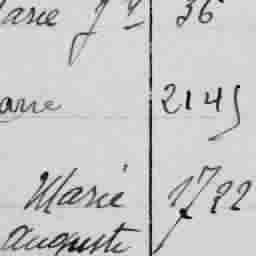 Marie J^e 36
arie 2145
Marie 1722
Auguste